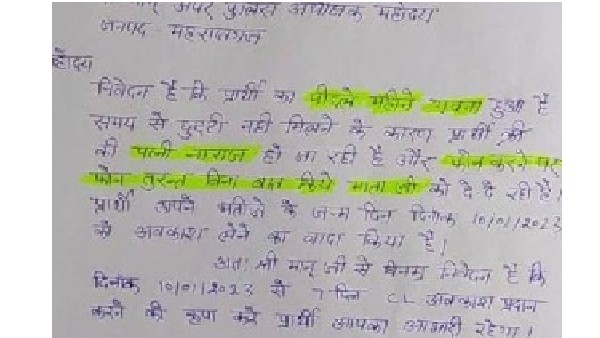 अपर पुलिस अधीक्षक महोदय
जनपद - महराजगंज
महोदय
निवेदन है कि प्रार्थी का पिछले महीने गवना हुआ है
समय से छुट्टी नही मिलने के कारण प्रार्थी की
की पत्नी नाराज हो जा रही है और फोन करने पर
फोन तुरन्त बिना बात किये माता जी को दे दे रही है।
प्रार्थी अपने भतीजे के जन्म दिन दिनांक 10/01/2023
को अवकाश लेने का वादा किया है।
अतः श्री मान् जी से विनम्र निवेदन है कि
दिनांक 10/01/2023 से 7 दिन CL अवकाश प्रदान
करने की कृपा करें प्रार्थी आपका आभारी रहेगा।